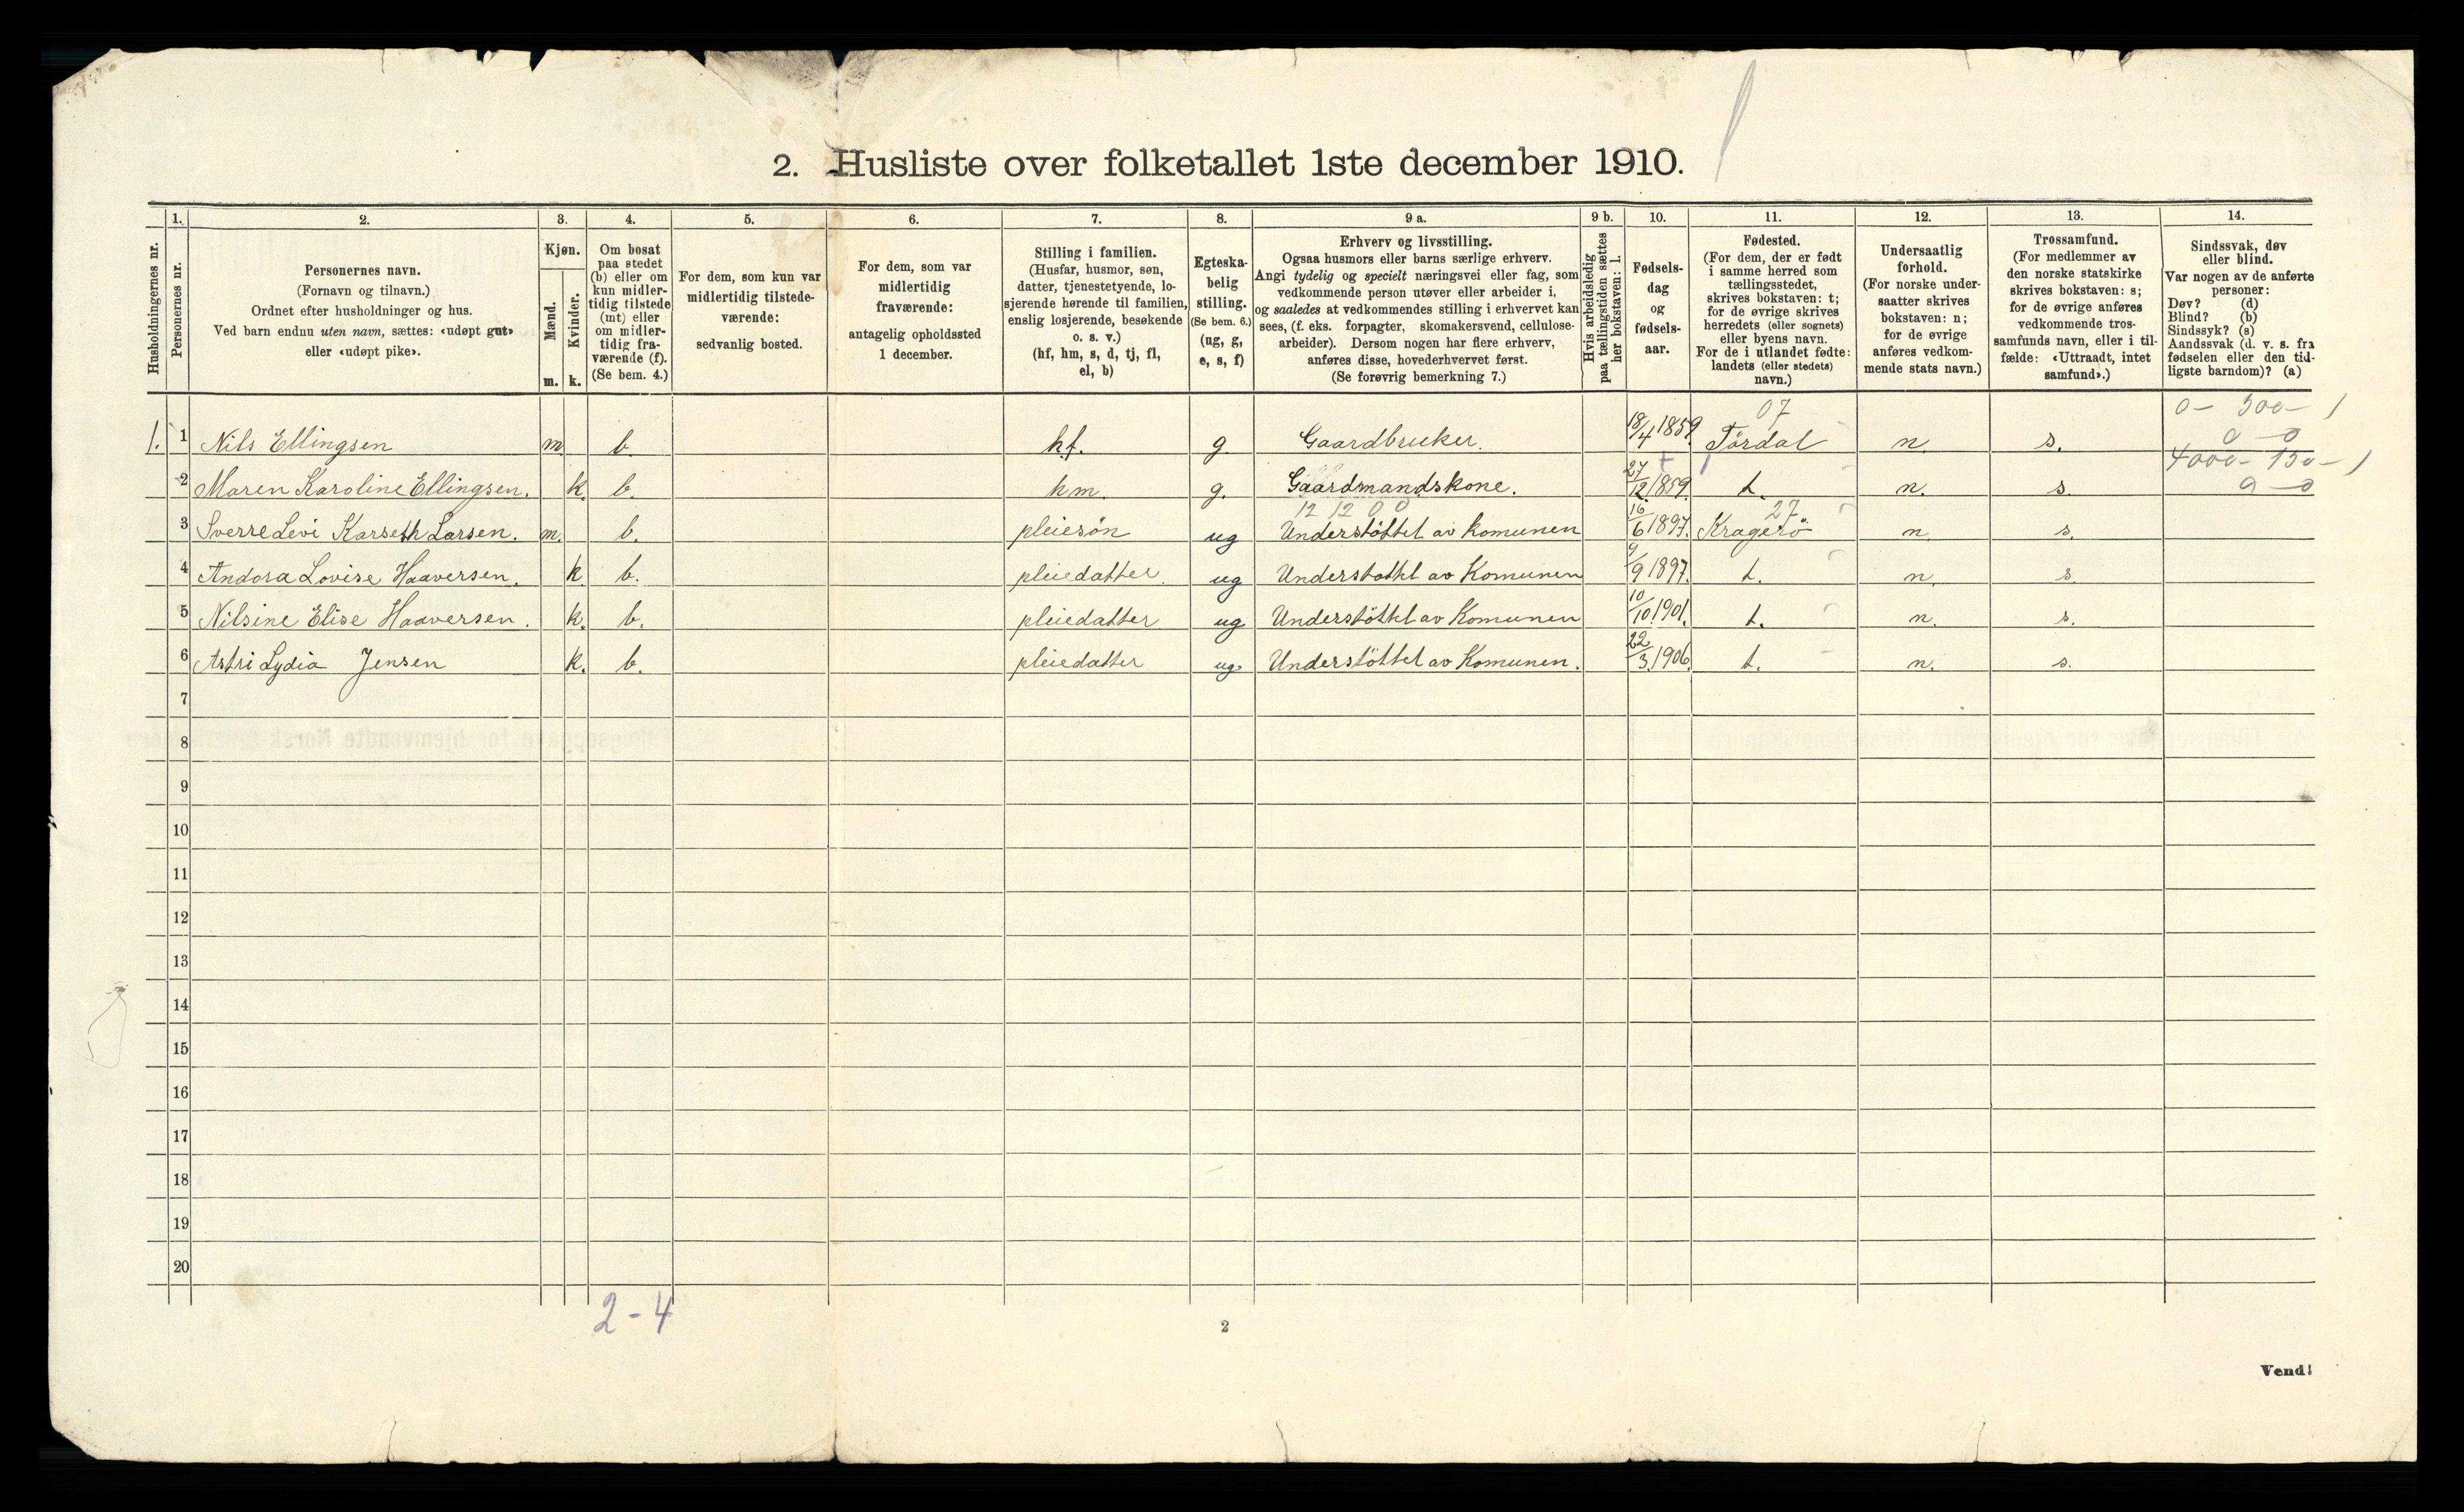 2. Husliste over folketallet 1ste december 1910.
1. 2. 3. 4. 5. 6. 7. 8. 9 a. 9 b. 10. 11. 12. 13. 14.
Husholdningernes nr.
Personernes nr.
Personernes navn.
(Fornavn og tilnavn.)
Ordnet efter husholdninger og hus.
Ved barn endnu uten navn, sættes: «udøpt gut»
eller «udøpt pike».
Kjøn.
Mænd.
Kvinder.
m. k.
Om bosat
paa stedet
(b) eller om
kun midler-
tidig tilstede
(mt) eller
om midler-
tidig fra-
værende (f).
(Se bem. 4.)
For dem, som kun var
midlertidig tilstede-
værende:
sedvanlig bosted.
For dem, som var
midlertidig
fraværende:
antagelig opholdssted
1 december.
Stilling i familien.
(Husfar, husmor, søn,
datter, tjenestetyende, lo-
sjerende hørende til familien,
enslig losjerende, besøkende
o. s. v.)
(hf, hm, s, d, tj, fl,
el, b)
Egteska-
belig
stilling.
(Se bem. 6.)
(ug, g,
e, s, f)
Erhverv og livsstilling.
Ogsaa husmors eller barns særlige erhverv.
Angi tydelig og specielt næringsvei eller fag, som
vedkommende person utøver eller arbeider i,
og saaledes at vedkommendes stilling i erhvervet kan
sees, (f. eks. forpagter, skomakersvend, cellulose-
arbeider). Dersom nogen har flere erhverv,
anføres disse, hovederhvervet først.
(Se forøvrig bemerkning 7.)
Hvis arbeidsledig
paa tællingstiden sættes
her bokstaven: l.
Fødsels-
dag
og
fødsels-
aar.
Fødested.
(For dem, der er født
i samme herred som
tællingsstedet,
skrives bokstaven: t;
for de øvrige skrives
herredets (eller sognets)
eller byens navn.
For de i utlandet fødte:
landets (eller stedets)
navn.)
Undersaatlig
forhold.
(For norske under-
saatter skrives
bokstaven: n;
for de øvrige
anføres vedkom-
mende stats navn.)
Trossamfund.
(For medlemmer av
den norske statskirke
skrives bokstaven: s;
for de øvrige anføres
vedkommende tros-
samfunds navn, eller i til-
fælde: «Uttraadt, intet
samfund».)
Sindssvak, døv
eller blind.
Var nogen av de anførte
personer:
Døv? (d)
Blind? (b)
Sindssyk? (s)
Aandssvak (d. v. s. fra
fødselen eller den tid-
ligste barndom)? (a)
07 0- 300- 1
1. 1 Nils Ellingsen m b. hf. g. Gaardbruker. 18/4 1859 Tördal n. s. 0-0
4000- 150- 1
2 Maren Karoline Ellingsen. k. b. hm. g. Gaardmandskone. 27/12 1859. t. n. s. 0-0
12 12 0 0 27
3 Sverre Levi Karseth Larsen. m. b. pleiesön ug Understöttet av komunen 16/6 1897. Kragerö n s.
4 Andora Lovise Haaversen. k b. pleiedatter. ug Understöttet av Komunen 9/9 1897. t. n. s.
5 Nilsine Elise Haaversen. k. b. pleiedatter ug Understöttet av Komunen 10/10 1901. t. n. s.
6 Astri Lydia Jensen k. b. pleiedatter ug. Understöttet av Komunen. 22/3 1906. t. n. s.
7
8
9
10
11
12
13
14
15
16
17
18
19
20
2-4
2
Vend!